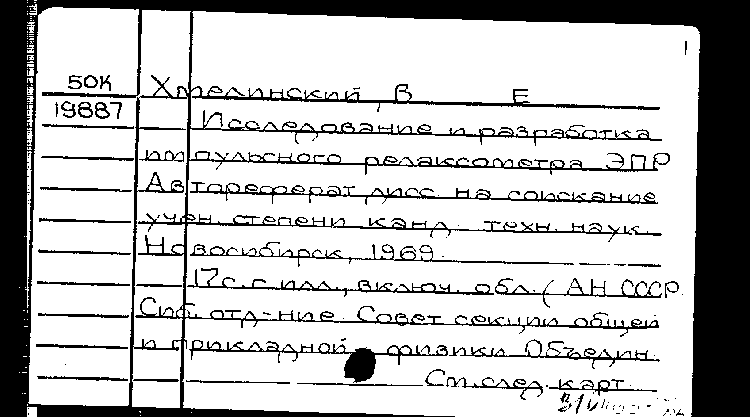 1
50К Хмелинский, В Е
19887
Исследование и разработка
импульсного релаксометра ЭПР
Автореферат дисс на соискание
учен степени канд. техн. наук.
Новосибирск, 1969.
17с. с илл., включ. обл. (АН СССР
Сиб. отд-ние. Совет секции общей
и прикладной физики Объедин.
См. след. карт.